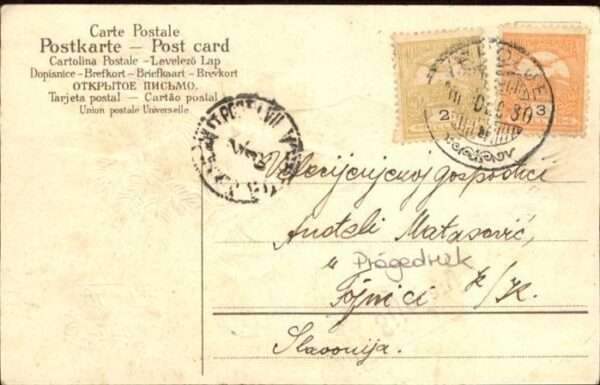 Carte Postale
Postkarte – Post card
Cartolina Postale - Levelező Lap
Dopisnice - Brefkort - Briefkaart - Brevkort
ОТКРЫТОЕ ПИСЬМО.
Tarjeta postal – Cartão postal
Union postale Universelle
2
3
DEC 30
Velecijenjenoj gospođici
Anđeli Matasović,
u Prägedruck
Fojnici
Slavonija.